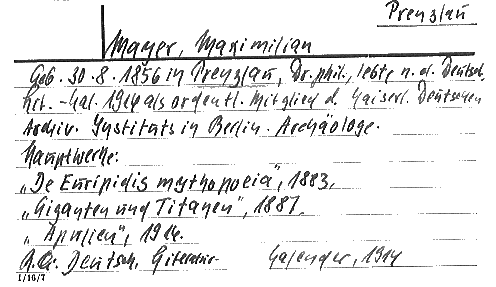 Prenzlau
Mayer, Maximilian
Geb. 30.8.1856 in Prenzlau, Dr. phil., lebte n. d. Deutsch.
Lit.-Kal. 1914 als ordentl. Mitglied d. Kaiserl. Deutschen
Archäol. Instituts in Berlin. Archäologe.
Hauptwerke:
„De Euripidis mythopoeia", 1883,
„Giganten und Titanen", 1887,
„Apulien", 1914.
Deutsch. Literatur- Kalender, 1914
1/16/7